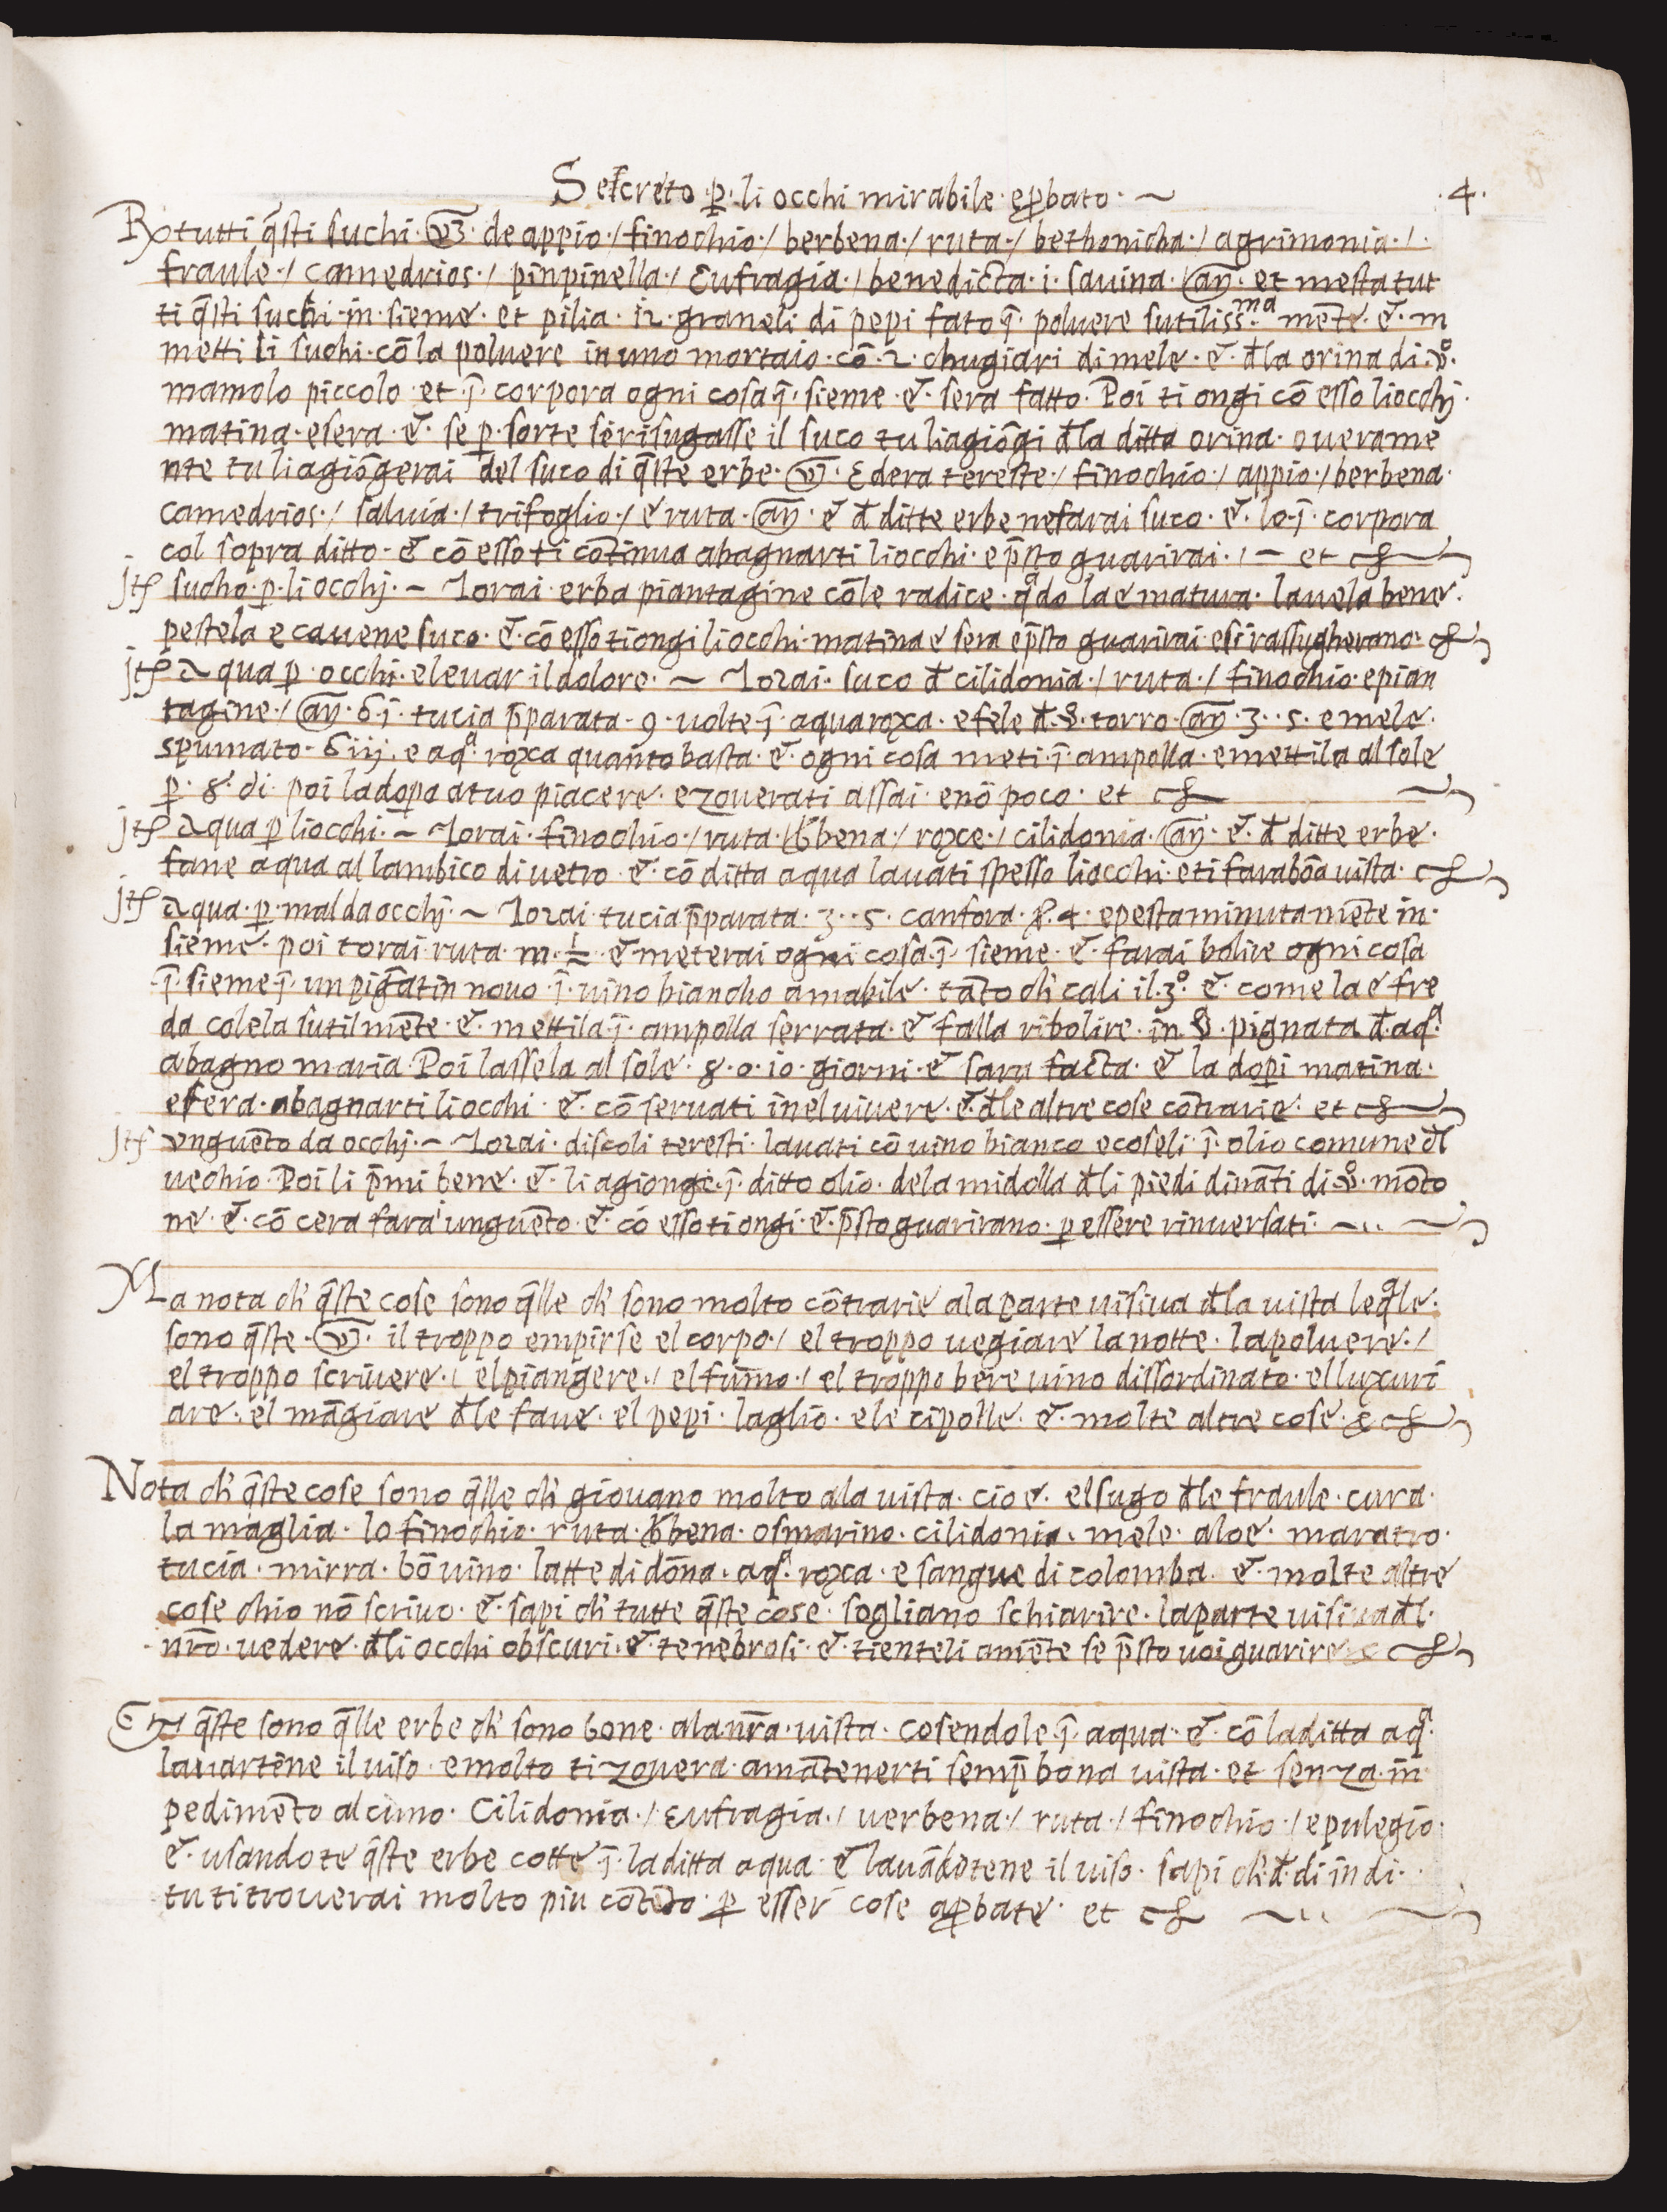 Sefcreto · p̱ · li occhi mirabile · eꝓbato · ~
· 4 ·
℞ tutti q̄sti suchi · vȝ · de appio · / finochio · / berbena · / ruta · / bethonicha · / agrimonia · / ·
fraule · / camedrios · / pinpinella · / Eufragia · / benedicta · i · savina · / an̄ · et mesta tut
ti q̄sti suchi · in · sieme · et pilia · 12 · graneli di pepi fato q̄ · poluere sutiliss · ma mēte · e · m
metti li suchi · cō la poluere in uno mortaio · cō · 2 · chugiari di mele · e · đla orina di · v̊ ·
mamolo piccolo · et · ī · corpora ogni cosa ī · sieme · e · sera fatto · Poi ti ongi cō esso li occhj ·
matina · e sera · e · se p̱ · sorte se risugasse il suco tu li agiōgi đla ditta orina · overame
nte tu li agiōgerai del suco di q̄ste erbe · vȝ · Edera tereste · / finochio · / appio · / berbena ·
camedrios · / salvia · / trifoglio · / e ruta · an̄ · e đ ditte erbe ne farai suco · e · lo · ī · corpora
col sopra ditto · e cō esso ti cōtinua a bagnarti li occhi · e p̄sto guarirai · / — et cȝ
jtē sucho · p̱ · li occhj · ~ Torai · erba piantagine cō le radice · qādo la e matura · lavela bene ·
pestela e cavene suco · e · cō esso ti ongi li occhi · matina e sera e p̄sto guarirai · e si rassugherano · cȝ
jtē aqua p̱ · occhi · e levar il dolore · ~ Torai · suco đ cilidonia · / ruta · / finochio · e pian
tagine · / an̄ · ℔ · ī · tucia p̄parata · 9 · volte · ī · aqua roxa · e fele đ · v̊ · torro · an̄ · ʒ · · 5 · e mele ·
spumato · ℔ iij · e aqa roxa quanto basta · e · ogni cosa meti · ī · ampolla · e mettila al sole
p̱ · 8 · di · poi la dopa a tuo piacere · e zoverati assai · e nō poco · et cȝ
jtē aqua p̱ li occhi · ~ Torai · finochio · / ruta · / ƀbena · / roxe · / cilidonia · an̄ · e · đ ditte erbe ·
fane aqua al lambico di vetro · e · cō ditta aqua lavati spesso li occhi · e ti fara bōa vista · cȝ
jtē aqua · p̱ · mal da occhj · ~ Torai · tucia p̄parata · ʒ · · 5 · canfora · 4 · e pesta minutamēte in ·
sieme · poi torai ruta · m · ½ · e meterai ogni cosa · ī · sieme · e · farai bolire ogni cosa
· ī · sieme · ī · un pignatin novo · ī · vino biancho amabile · tāto ch̄ cali il · 3° · e · come la e fre
da colela sutilmēte · e · mettila · ī · ampolla serrata · e falla ribolire · in v̊ · pignata đ · aqa
a bagno maria Poi lassela al sole · 8 · o · 10 · giorni · e sara facta · e la dopi matina ·
e sera · a bagnarti li occhi · e · cō servati in el vivere · e · đ le altre cose cōtrarie · et cȝ
jtē vnguēto da occhj · ~ Torai · discoli teresti · lavati cō vino bianco e coseli · ī · olio comune đl
vechio · Poi li p̄mi bene · e · li agionge · ī · ditto olio · de la midolla đ li piedi dināti di · v̊ · mōto
ne · e · cō cera fara unguēto · e · cō esso ti ongi · e · p̄sto guarirano · p̱ essere rinversati · ~ · ·
Ma nota ch̄ q̄ste cose sono q̄lle ch̄ sono molto cōtrarie a la parte visiva đla vista le qale ·
sono q̄ste · vȝ · il troppo empirse el corpo · / el troppo vegiare la notte · la polvere · /
el troppo scrivere · / el piangere · / el fumo · / el troppo bere vino dissordinato · el luxuri
are · el māgiare đle fave · el pepi · l aglio · e le cipolle · e · molte altre cose · & cȝ
Nota ch̄ q̄ste cose sono q̄lle ch̄ giovano molto a la vista · cioe · el sugo đle fraule · cura ·
la maglia · lo finochio · ruta · ƀbena · osmarino · cilidonia · mele · aloe · maratro ·
tucia · mirra · bō vino · latte di dōna · aqa · roxa · e sangue di colomba · e · molte altre
cose chio nō scrivo · e · sapi ch̄ tutte q̄ste cose · sogliano schiarire · la parte visiva đl ·
nr̄o · vedere · đli occhi obscuri · e · tenebrosi · e · tienteli a mēte se p̄sto voi guarire & cȝ
Et q̄ste sono q̄lle erbe ch̄ sono bone · a la nr̄a · vista · cosendole · ī · aqua · e · cō la ditta aqa ·
lavartene il viso · e molto ti zovera · a mātenerti semp̄ bona vista · et senza · in
pedimēto alcuno · Cilidonia · / Eufragia · / verbena · / ruta · / finochio · / e pulegio ·
e · usandote q̄ste erbe cotte · ī · la ditta aqua · e lavādotene il viso · sapi ch̄ · đ · di in di ·
tu ti troverai molto piu cōtēto · p̱ esser cose aꝓbate · et cȝ ~ · ·